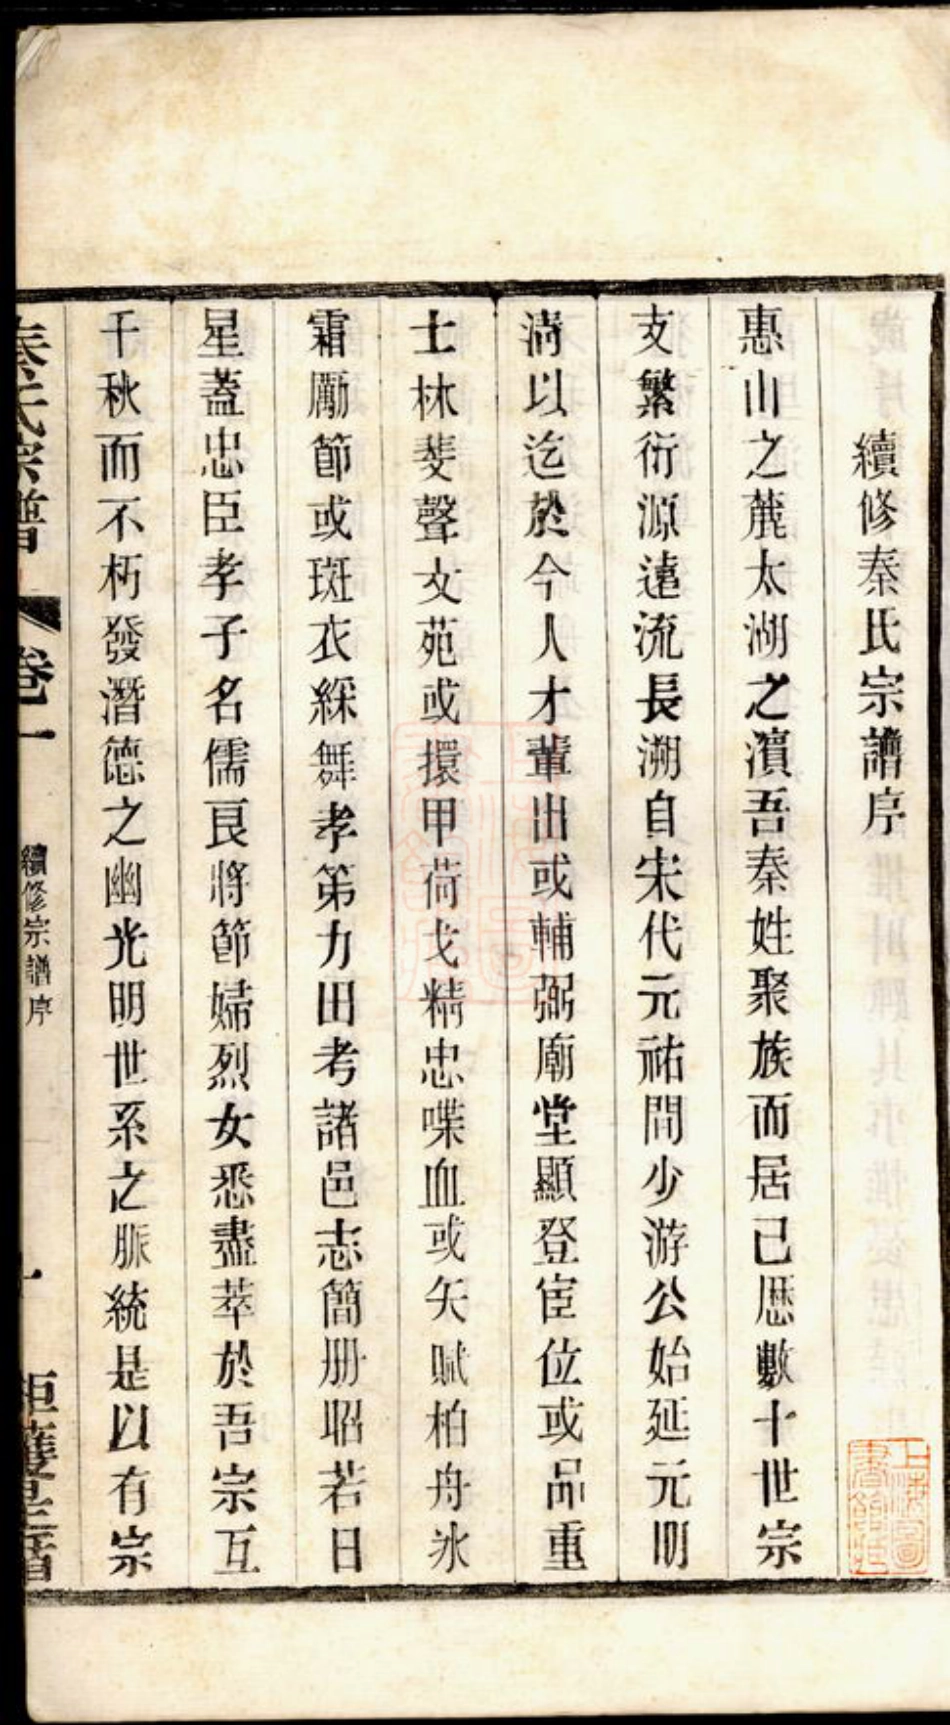 續修秦氏宗譜序
惠山之麓太湖之濱吾秦姓聚族而居已歷數十世宗
支繁衍源遠流長溯自宋代元祐間少游公始延元明
淸以迄於今人才輩出或輔弼廟堂顯登宦位或品重
士林斐聲文苑或擐甲荷戈精忠喋血或矢賦柏舟冰
霜勵節或斑衣綵舞孝第力田考諸邑志簡册昭若日
星蓋忠臣孝子名儒良將節婦烈女悉盡萃於吾宗互
千秋而不朽發潛德之幽光明世系之脈統是以有宗
秦氏宗譜
卷一
續修宗譜序
一
上海圖書館藏